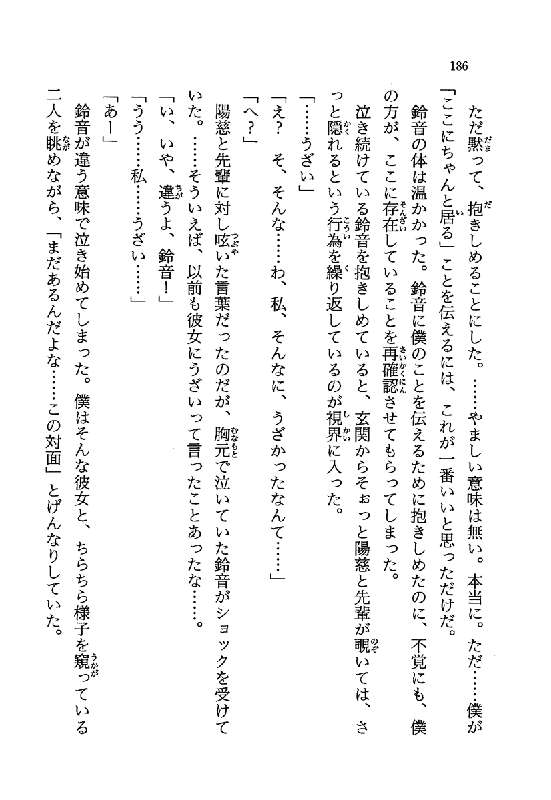 186
ただ黙って、抱きしめることにした。……やましい意味は無い。本当に。ただ……僕が
「ここにちゃんと居る」ことを伝えるには、これが一番いいと思っただけだ。
鈴音の体は温かかった。鈴音に僕のことを伝えるために抱きしめたのに、不覚にも、僕
の方が、ここに存在していることを再確認させてもらってしまった。
泣き続けている鈴音を抱きしめていると、玄関からそぉっと陽慈と先輩が覗いては、さ
っと隠れるという行為を繰り返しているのが視界に入った。
「……うざい」
「え？　そ、そんな……わ、私、そんなに、うざかったなんて……」
「へ？」
陽慈と先輩に対し呟いた言葉だったのだが、胸元で泣いていた鈴音がショックを受けて
いた。……そういえば、以前も彼女にうざいって言ったことあったな……。
「い、いや、違うよ、鈴音！」
「うう……私……うざい……」
「あー」
鈴音が違う意味で泣き始めてしまった。僕はそんな彼女と、ちらちら様子を窺っている
二人を眺めながら、「まだあるんだよな……この対面」とげんなりしていた。